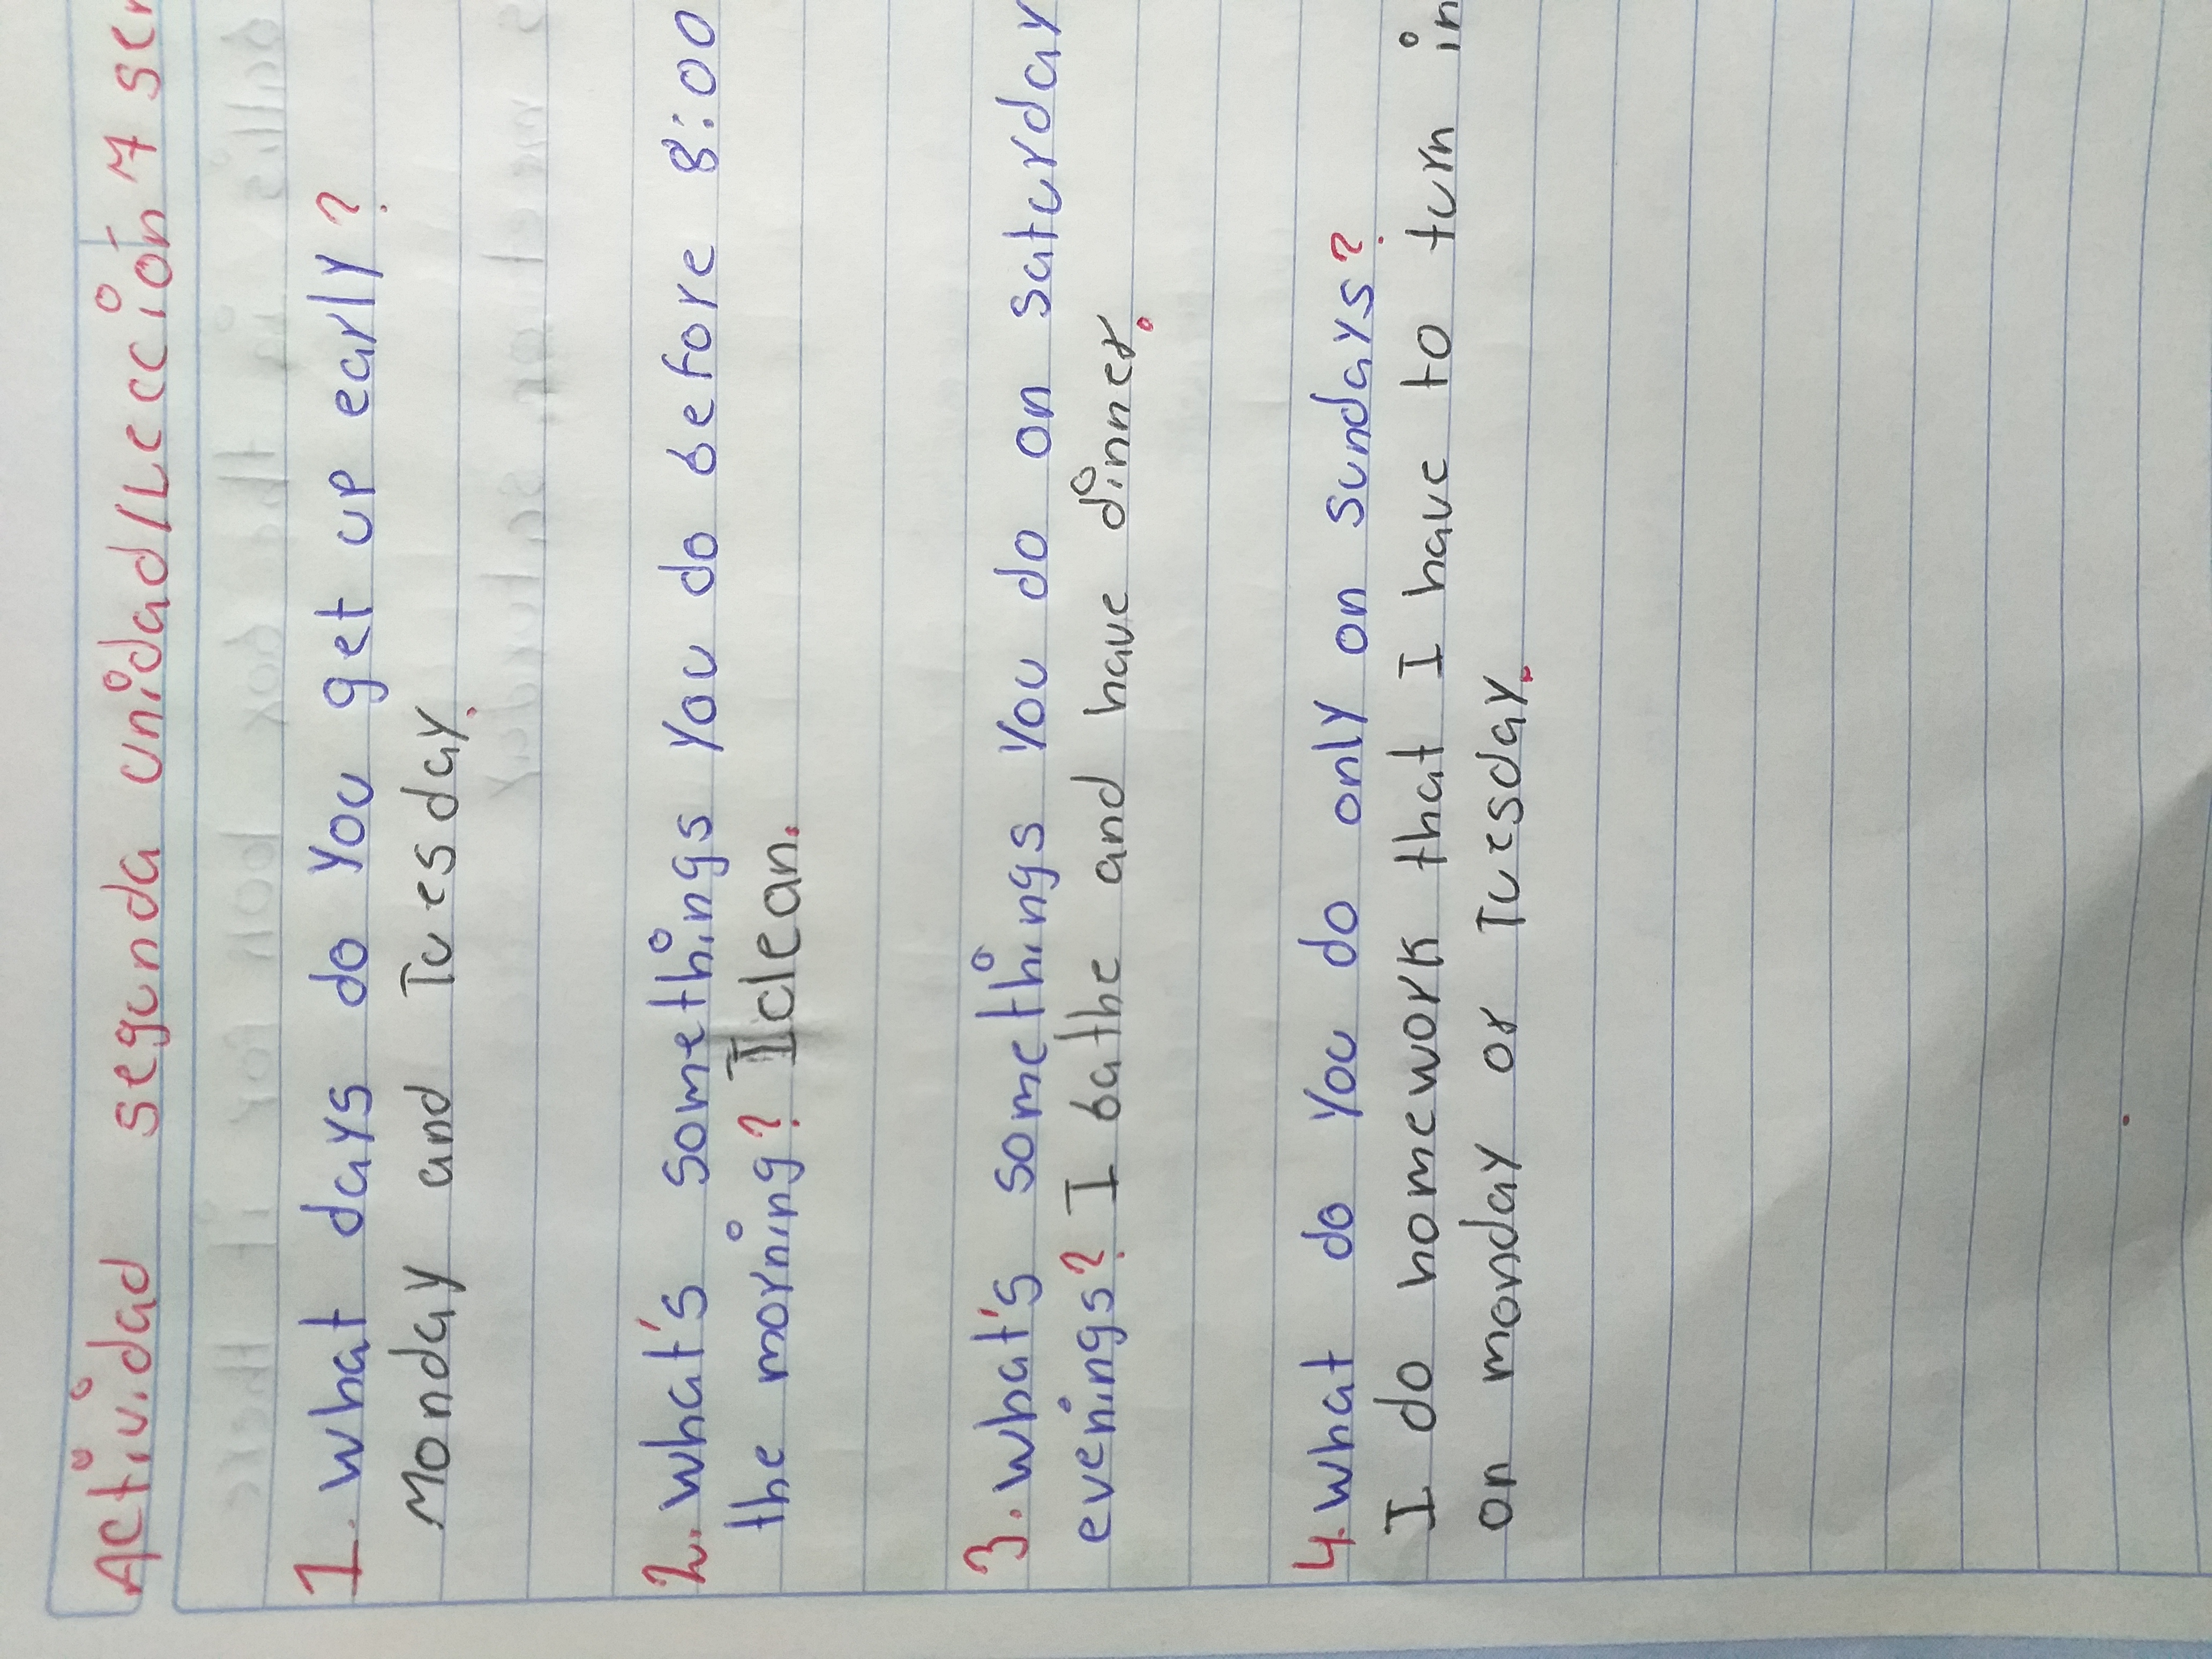 Actividad segunda unidad/Lección 7
1. what days do you get up early?
Monday and Tuesday.
2. what's somethings you do before 8:00
the morning? I clean.
3. what's somethings you do on saturday
evenings? I bathe and have dinner.
4. what do you do only on sundays?
I do homework that I have to turn in
on monday or Tuesday.